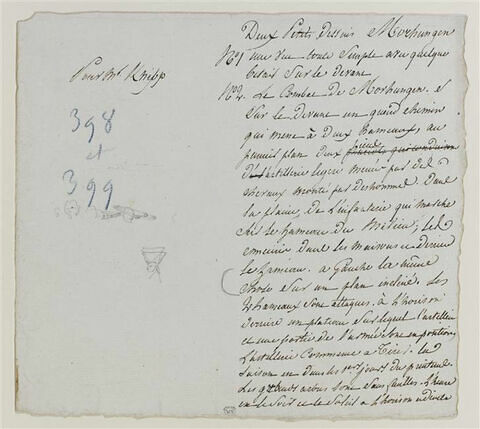 Pour Mr Knipp
398
et
399
Deux Petits dessins Morhungen
No 1 une vue toute Simple avec quelque
betail Sur le devant
No 2. Le Combat de Morhungen. et
Sur le Devant un grand chemin
qui mene à deux hameaux, au
premier plan deux pieces qui conduisen
d'artillerie legere menée par des
chevaux monté par des homme. Dans
la plaine, de l'infanterie qui marche
vers le hameau du Milieu; les
ennemie dans les maisons et derriere
le hameau. a Gauche la même
chose Sur un plan incliné. Les
2 hameaux Sont attaqués. à L'horison
derriere un plateau Sur lequel l'artillerie
et une partie de l'armée Sont en position
L'artillerie Commence a Tirer. la
Saison est dans les 1ers jours du printems.
Les grands arbres Sont Sans feuilles. L'heure
est le Soir et le Soleil a L'horison